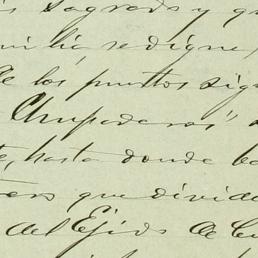 Sagrado y qu
milia, se digne,
de los punttos sig
Chupaderos"
te, hasta donde ba
que divide
del Ejido de Cu